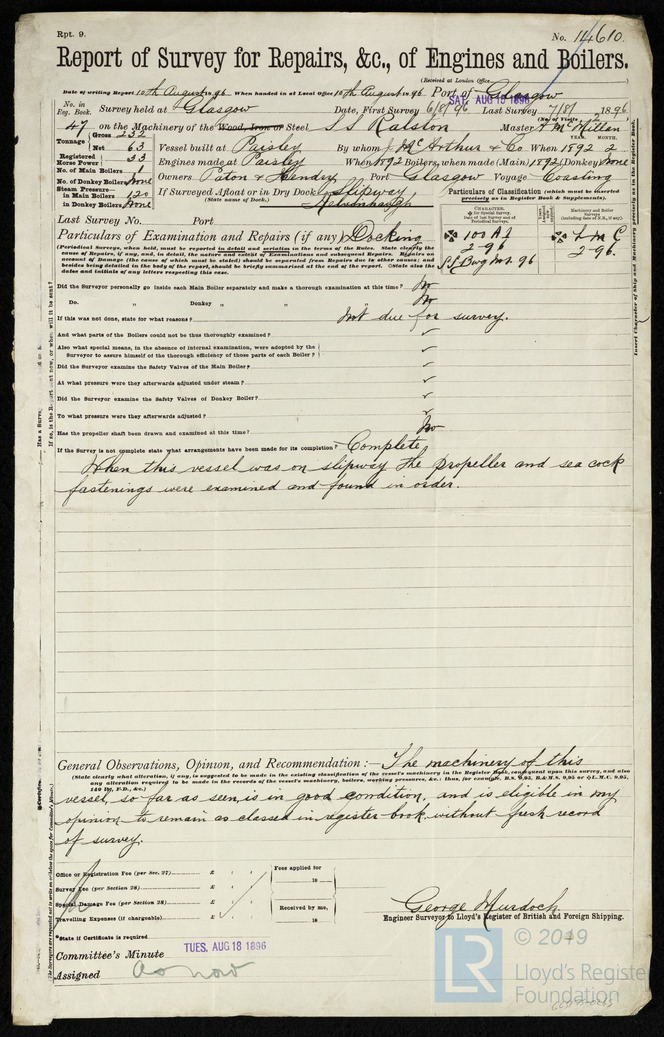 Rpt. 9.
No. 14610.
Report of Survey for Repairs, &c., of Engines and Boilers.
(Received at London Office
SAT. AUG 15 1896
Date of writing Report 10th August 1896 When handed in at Local Office 10th August 1896 Port of Glasgow
No. in Eng. Book. Survey held at Glasgow Date, First Survey 6/8/96 Last Survey 7/8/ 1896
(No. of Visits 2)
47 on the Machinery of the Wood, Iron or Steel S S Ralston Master A McMillan
Tonnage Gross 232
Net 63
Vessel built at Paisley By whom J. McArthur & Co When 1892 2
YEAR. MONTH.
Registered Horse Power 33 Engines made at Paisley When 1892 Boilers, when made (Main) 1892 (Donkey) None
No. of Main Boilers 1
No. of Donkey Boilers None Owners Paton & Hendry Port Glasgow Voyage Coasting
Steam Pressure—
in Main Boilers 120
in Donkey Boilers None
If Surveyed Afloat or in Dry Dock Slipway
(State name of Dock.) Kelvinhaugh
Particulars of Classification (which must be inserted precisely as in Register Book & Supplements).
CHARACTER.
Machinery and Boiler Surveys
(including date of N.B., if any).
100 A 1
2-96
S.S. Bwg No1. 96
L M C
2-96.
Last Survey No. Port
Particulars of Examination and Repairs (if any) Docking
(Periodical Surveys, when held, must be reported in detail and seriatim in the terms of the Rules. State clearly the cause of Repairs, if any, and, in detail, the nature and extent of Examinations and subsequent Repairs. Repairs on account of Damage (the cause of which must be stated) should be separated from Repairs due to other causes; and besides being detailed in the body of the report, should be briefly summarised at the end of the report. State also the dates and initials of any letters respecting this case.
Did the Surveyor personally go inside each Main Boiler separately and make a thorough examination at this time? No
Do. " Donkey " " " No
If this was not done, state for what reasons? Not due for survey.
And what parts of the Boilers could not be thus thoroughly examined? ✓
Also what special means, in the absence of internal examination, were adopted by the Surveyor to assure himself of the thorough efficiency of those parts of each Boiler? ✓
Did the Surveyor examine the Safety Valves of the Main Boiler? ✓
At what pressure were they afterwards adjusted under steam? ✓
Did the Surveyor examine the Safety Valves of Donkey Boiler? ✓
To what pressure were they afterwards adjusted? ✓
Has the propeller shaft been drawn and examined at this time? No
If the Survey is not complete state what arrangements have been made for its completion? Complete
When this vessel was on slipway the propeller and sea cock
fastenings were examined and found in order.
General Observations, Opinion, and Recommendation:— The machinery of this
(State clearly what alteration, if any, is suggested to be made in the existing classification of the vessel's machinery in the Register Book, consequent upon this survey, and also any alteration required to be made in the records of the vessel's machinery, boilers, working pressure, &c.: thus, for example, B.S. 9,95, B.&M.S. 9,95 or L.M.C. 9,95, 140 lb., F.D., &c.)
vessel, so far as seen, is in good condition, and is eligible in my
opinion to remain as classed in register book without fresh record
of survey.
Office or Registration Fee (per Sec. 27) £
Survey Fee (per Section 28) £
Special Damage Fee (per Section 28) £
Travelling Expenses (if chargeable) £
Fees applied for
18
Received by me,
18
George Murdoch
Engineer Surveyor to Lloyd's Register of British and Foreign Shipping.
*State if Certificate is required
TUES. AUG 18 1896
Committee's Minute
Assigned as now
LR © 2019
Lloyd's Register
Foundation
Insert Character of Ship and Machinery precisely as in the Register Book.